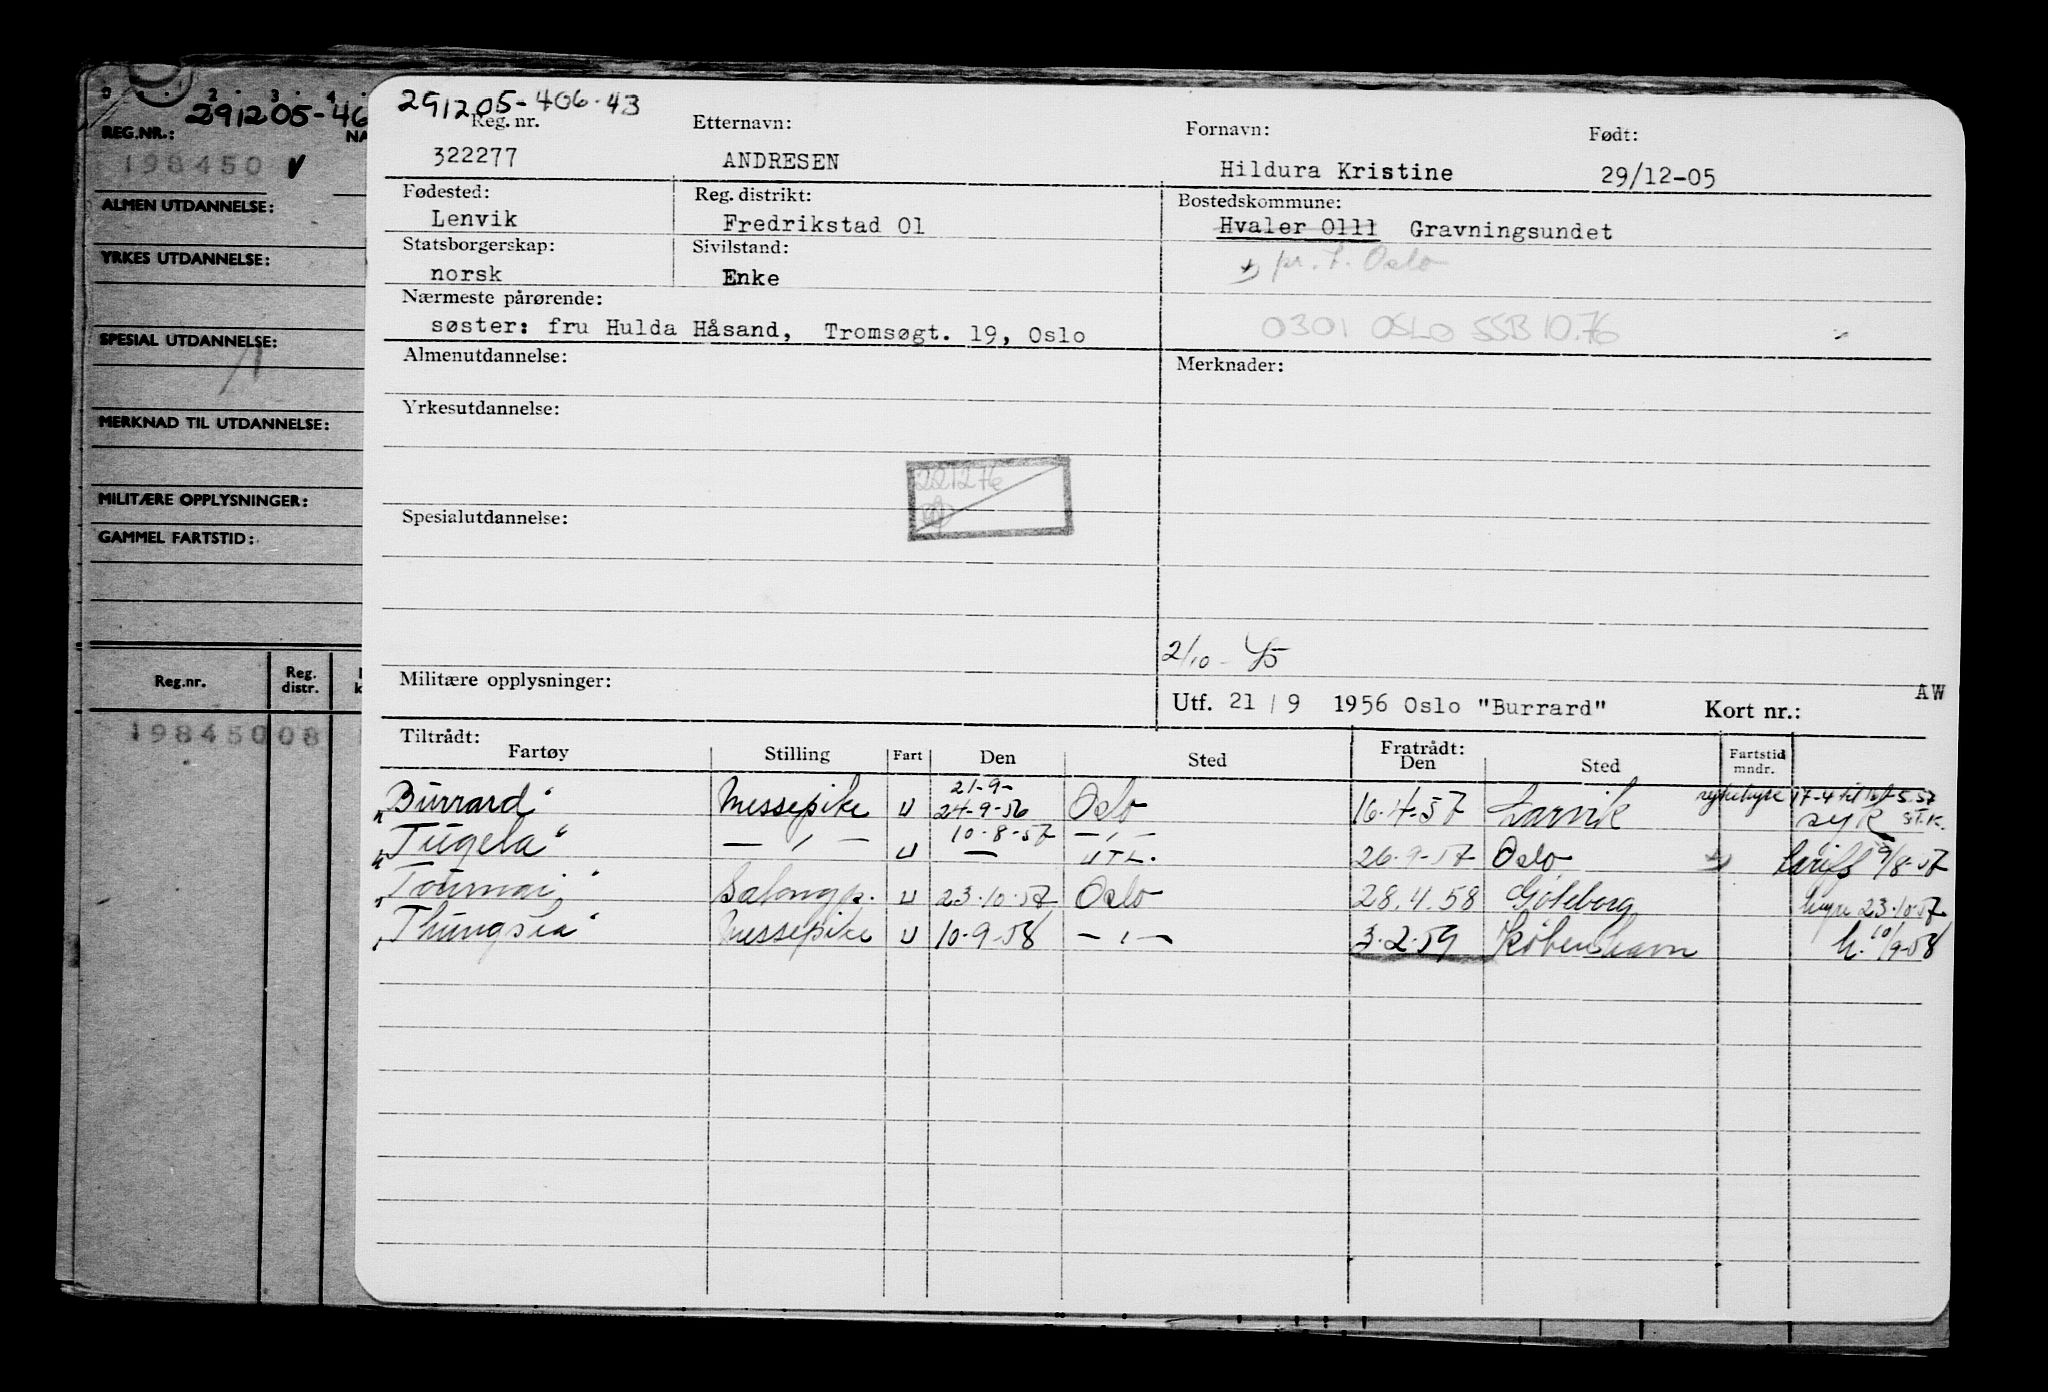 291205-46
REG.NR.:
NA
198450
ALMEN UTDANNELSE:
YRKES UTDANNELSE:
SPESIAL UTDANNELSE:
MERKNAD TIL UTDANNELSE:
MILITÆRE OPPLYSNINGER:
GAMMEL FARTSTID:
Reg.nr. Reg. distr.
19845008
291205-406.43
Reg. nr. Etternavn: Fornavn: Født:
322277 ANDRESEN Hildura Kristine 29/12-05
Fødested: Reg. distrikt: Bostedskommune:
Lenvik Fredrikstad 01 Hvaler 0111 Gravningsundet
Statsborgerskap: Sivilstand:
norsk Enke pr. t. Oslo
Nærmeste pårørende:
søster: fru Hulda Håsand, Tromsøgt. 19, Oslo
0301 OSLO SSB 10.76
Almenutdannelse: Merknader:
Yrkesutdannelse:
221276
Spesialutdannelse:
2/10-45
Militære opplysninger:
Utf. 21/9 1956 Oslo "Burrard" Kort nr.: AW
Tiltrådt: Fratrådt:
Fartøy Stilling Fart Den Sted Den Sted Fartstid mndr.
21-9-
"Burrard" Messepike U 24-9-56 Oslo 16.4-57 Larvik sykehyre 17-4 til 5.57
syk
10-8-57
"Tugela" — " — U — UTL. 26-9-57 Oslo tariff 9/8-57
"Tournai" Salongp. U 23.10.57 Oslo 28.4.58 Göteborg hyre 23.10.57
"Thungsia" Messepike U 10-9-58 — " — 3.2.59 København h. 10/9-58